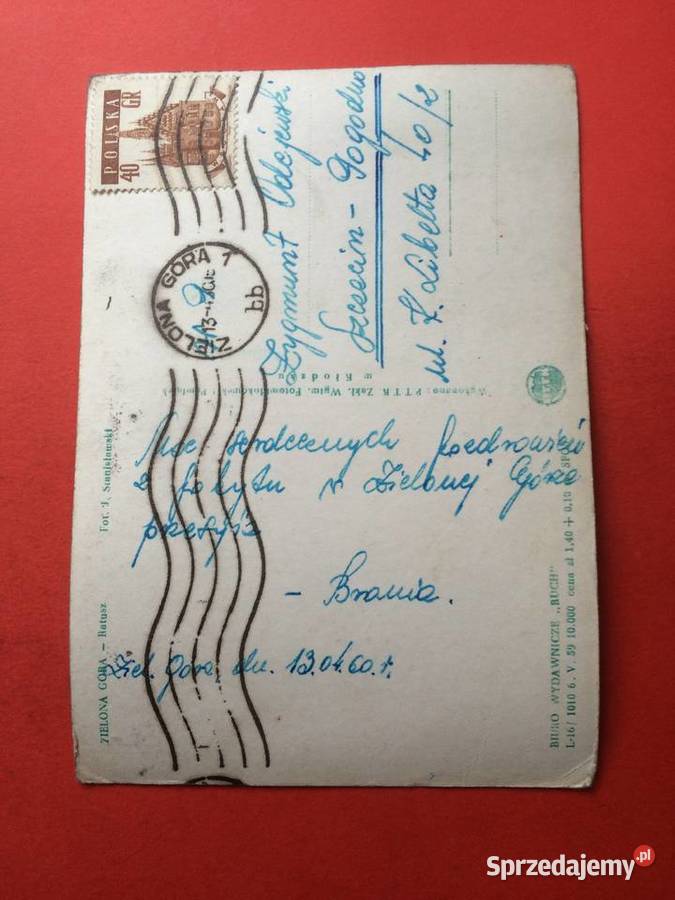 POLSKA
40 GR
ZIELONA GÓRA 1
bb
Zygmunt
Szczecin - Pogodno
ul. K. Libelta 40/2
Wykonano: P.T.T.K Zakł. Wytw. Fotowidokówek
w Kłodzku
ZIELONA GÓRA — Ratusz
Fot. J. Stanisławski
Moc serdecznych pozdrowień
z pobytu w Zielonej Górze
przesyła
- Brania.
Ziel. Góra dn. 13.04.60.r.
BIURO WYDAWNICZE „RUCH"
L-16/ 1010 6. V. 59 10.000 cena zł 1,40 + 0,10
Sprzedajemy.pl